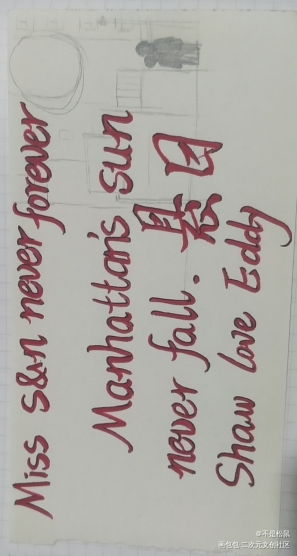 Miss s&n never forever
Manhattan's sun
never fall. 悬日
Shaw love Eddy
@不是松鼠
画包包·二次元文创社区